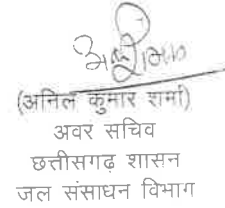 (अनिल कुमार शर्मा)
अवर सचिव
छत्तीसगढ़ शासन
जल संसाधन विभाग